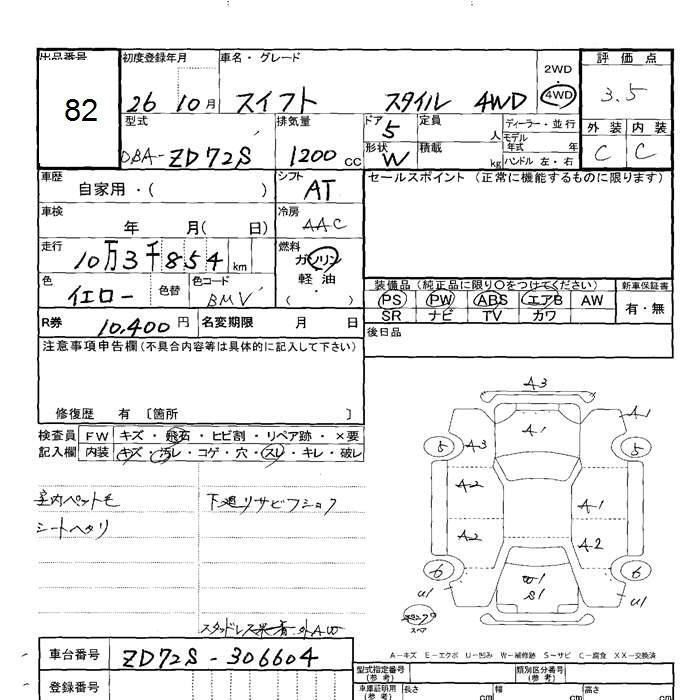 出品番号 初度登録年月 車名・グレード 2WD 評価点
82 26 10月 スイフト スタイル 4WD 4WD 3.5
型式 排気量 ドア 5 定員 人 ディーラー・並行 外装 内装
モデル年式 年
DBA-ZD72S 1200cc 形状 W 積載 kg ハンドル 左・右 C C
車歴 自家用・( ) シフト AT セールスポイント(正常に機能するものに限ります)
車検 年 月( 日) 冷房 AAC
走行 10万3千854km 燃料 ガソリン
軽油
( ・ )
色 イエロー 色替 色コード BMV 装備品(純正品に限り〇をつけてください) 新車保証書
PS PW ABS エアB AW 有・無
SR ナビ TV カワ
R券 10,400円 名変期限 月 日 後日品
注意事項申告欄(不具合内容等は具体的に記入して下さい)
修復歴 有 〔箇所 〕
検査員 FW キズ・飛石・ヒビ割・リペア跡・×要
記入欄 内装 キズ・汚レ・コゲ・穴・スレ・キレ・破レ
室内ペットモ 下廻りサビフショク
シートヘタリ
A3
A1 A1
5 A3 5
A2 A1
A2 A2
6 W1 6
U1 S1 U1
スペア
スタッドレス 外AW
A-キズ E-エクボ U-凹み W-補修跡 S-サビ C-腐食 XX-交換済
車台番号 ZD72S-306604 型式指定番号(参考) 類別区分番号(参考)
登録番号 車庫証明用(参考) 長さ cm 幅 cm 高さ cm